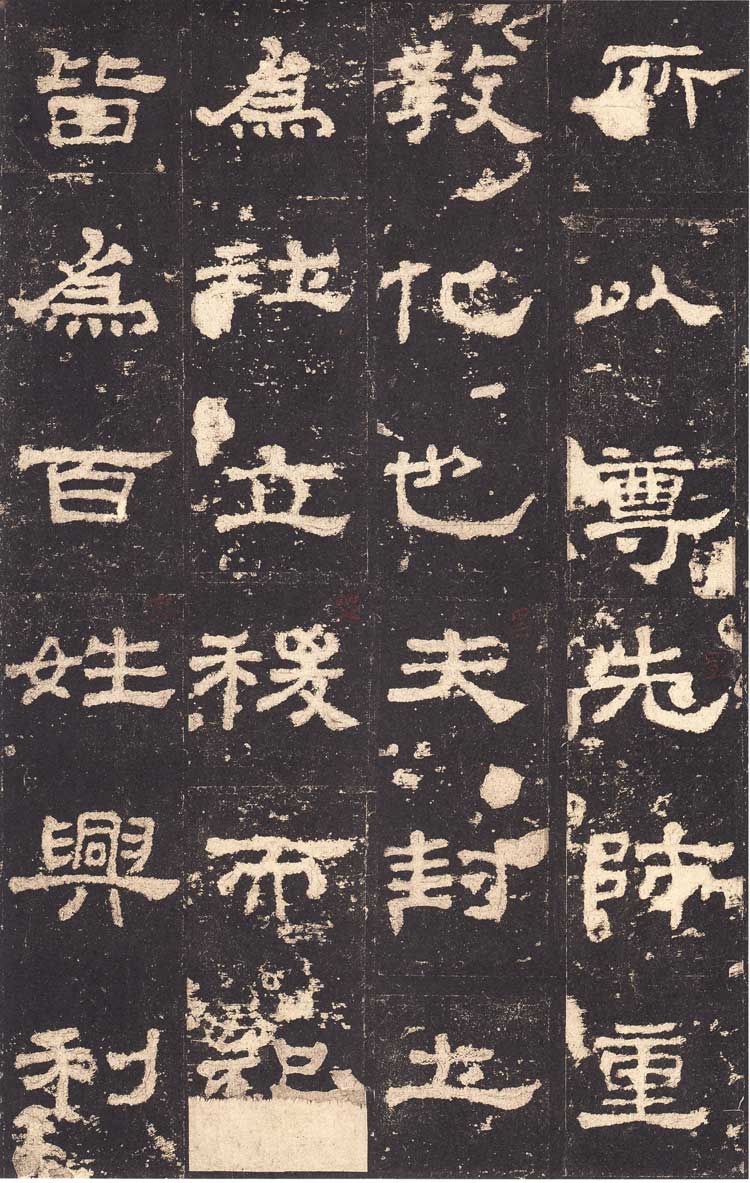 所以尊先師重
教化也夫封土
爲社立稷而祀
皆爲百姓興利